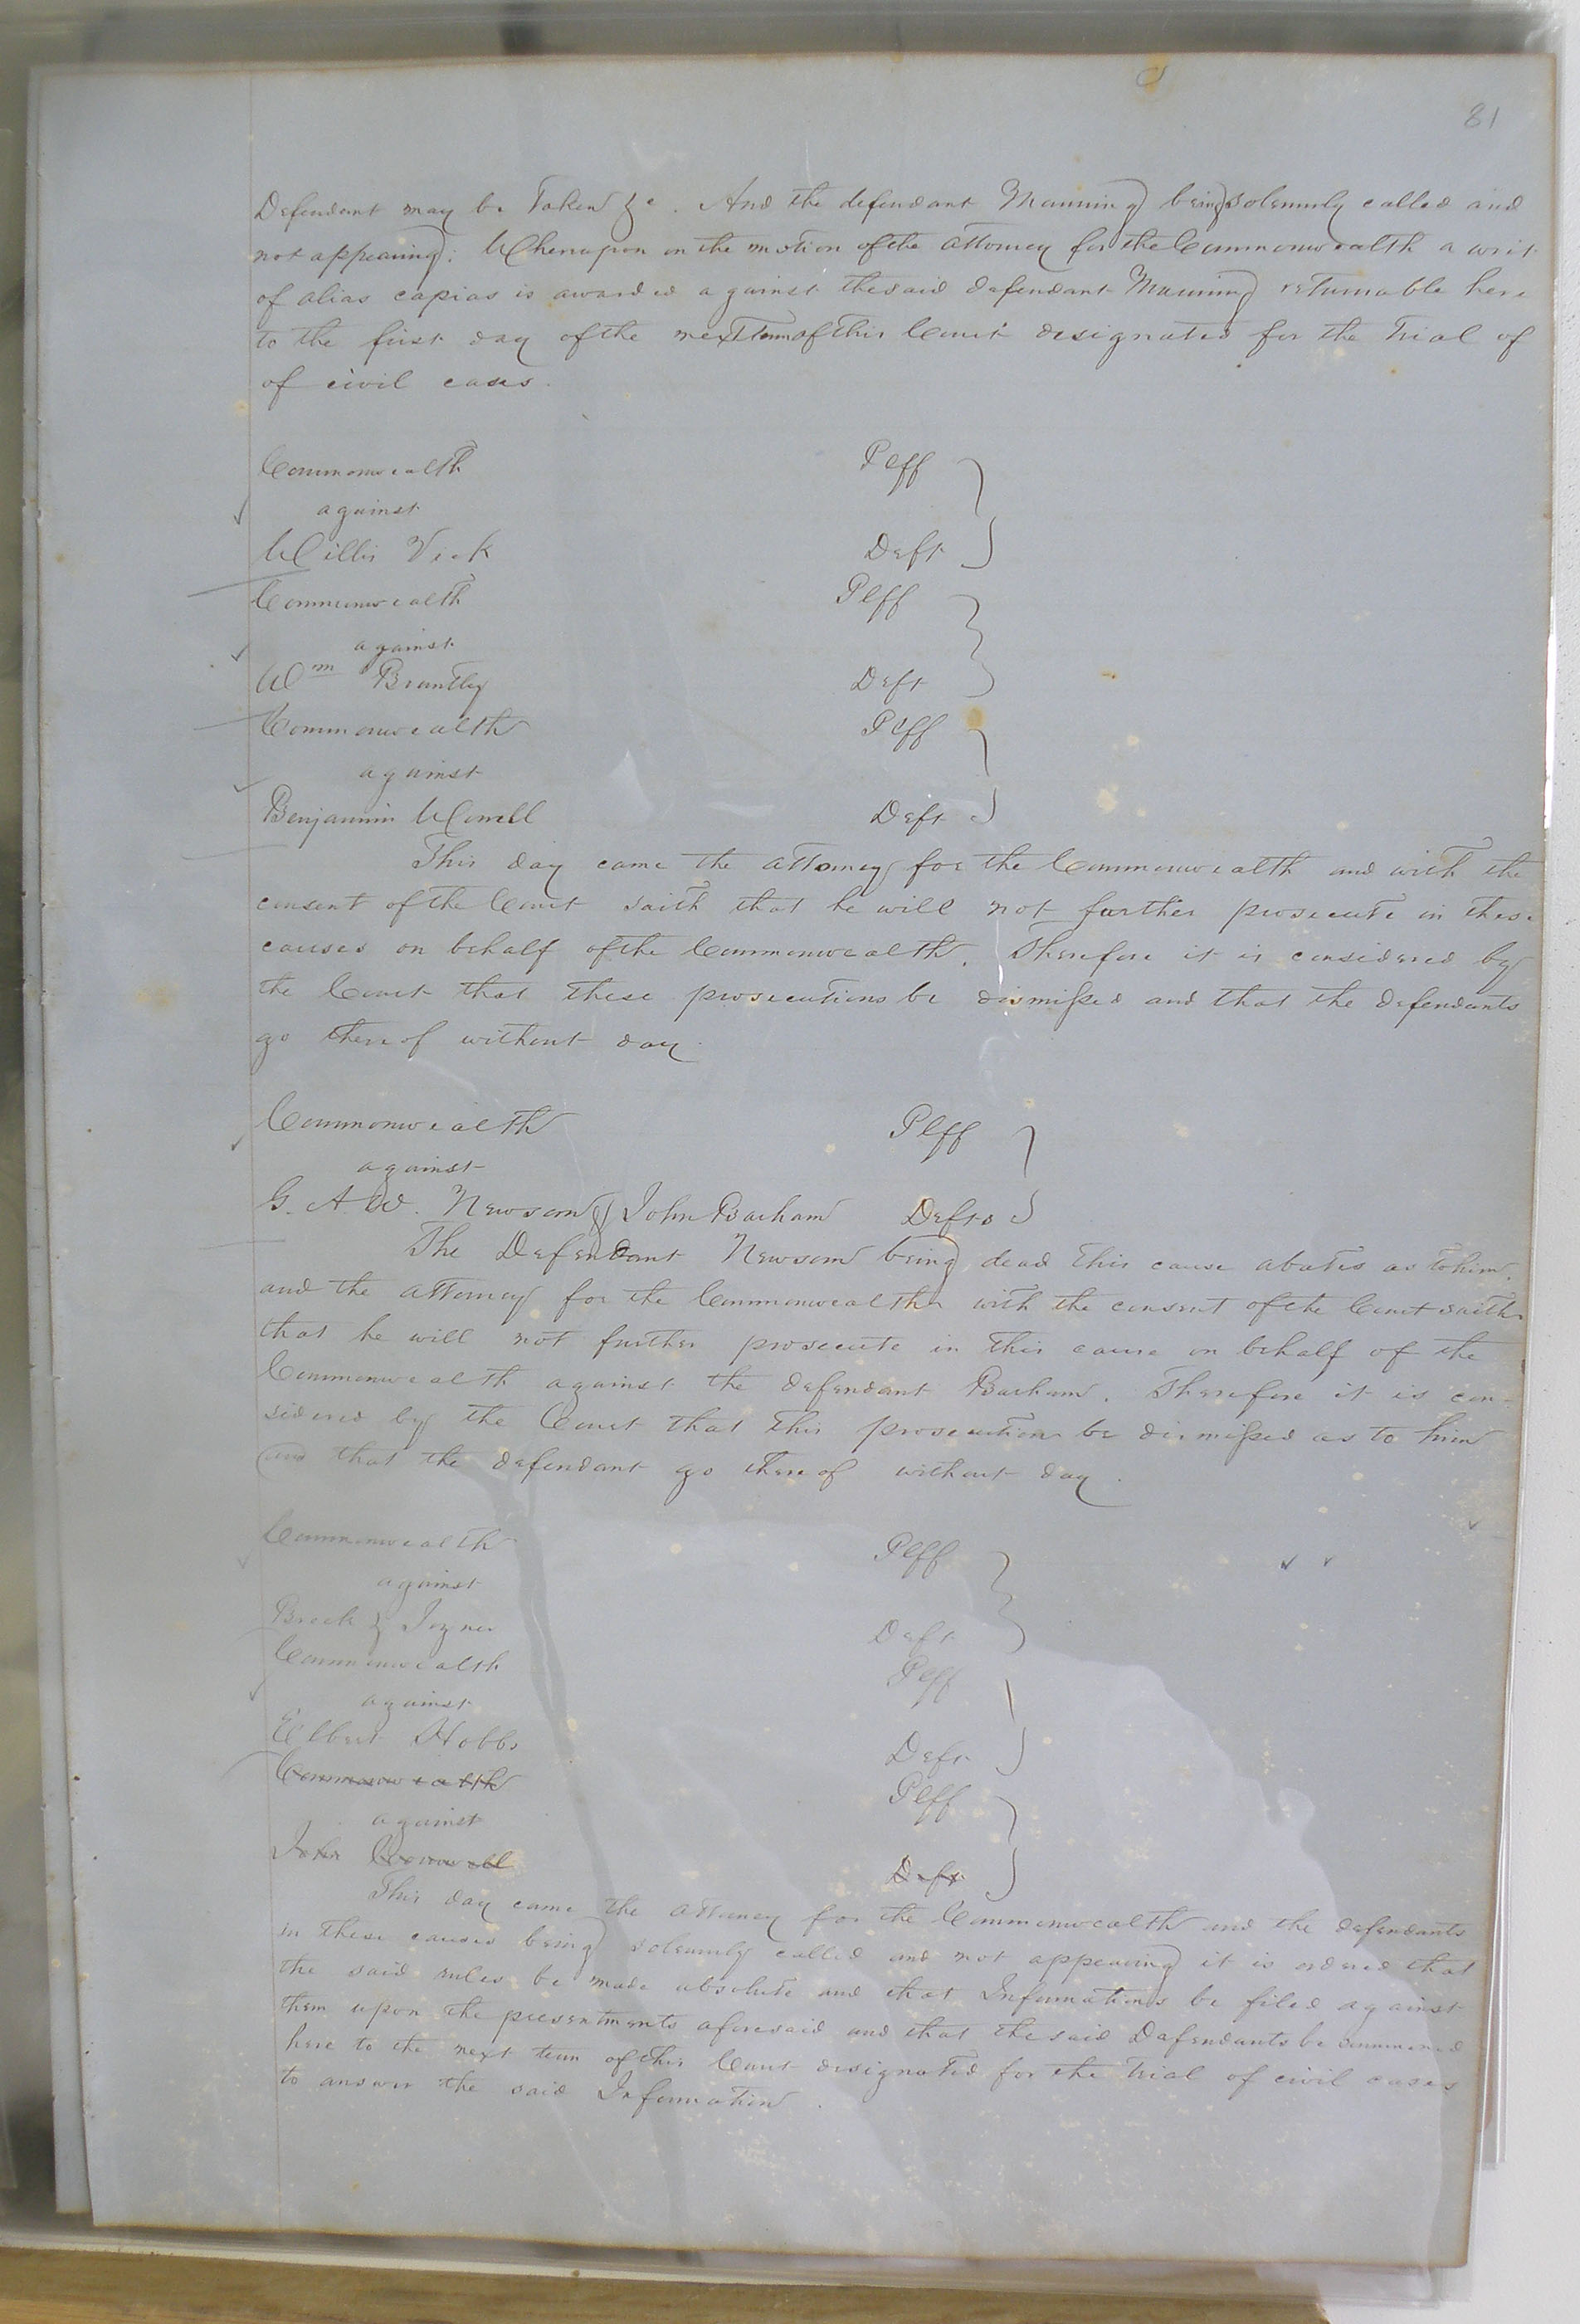 81
Defendant may be Taken &c. And the defendant Manning being solemnly called and
not appearing: Whereupon on the motion of the attorney for the Commonwealth a writ
of alias capias is awarded against the said defendant Manning returnable here
to the first day of the next Term of this Court designated for the Trial of
of civil cases.
Commonwealth Plff
against
Willis Vick Deft
Commonwealth Plff
against
Wm Brantley Deft
Commonwealth Plff
against
Benjamin Worrell Deft
This day came the attorney for the Commonwealth and with the
consent of the Court saith that he will not further prosecute in these
causes on behalf of the Commonwealth. Therefore it is considered by
the Court that these prosecutions be dismissed and that the defendants
go thereof without day.
Commonwealth Plff
against
G. A. W. Newsom & John Barham Defts
The Defendant Newsom being dead this cause abates as to him.
and the attorney for the Commonwealth with the consent of the Court saith
that he will not further prosecute in this cause on behalf of the
Commonwealth against the defendant Barham. Therefore it is con-
sidered by the Court that this prosecution be dismissed as to him
and that the defendant go thereof without day.
Commonwealth Plff
against
& Joyner Deft
Commonwealth Plff
against
Elbert Hobbs Deft
Commonwealth Plff
against
John Deft
This day came the attorney for the Commonwealth and the defendants
in these causes being solemnly called and not appearing it is ordered that
the said rules be made absolute and that Informations be filed against
them upon the presentments aforesaid and that the said Defendants be summoned
here to the next term of this Court designated for the trial of civil cases
to answer the said Information.